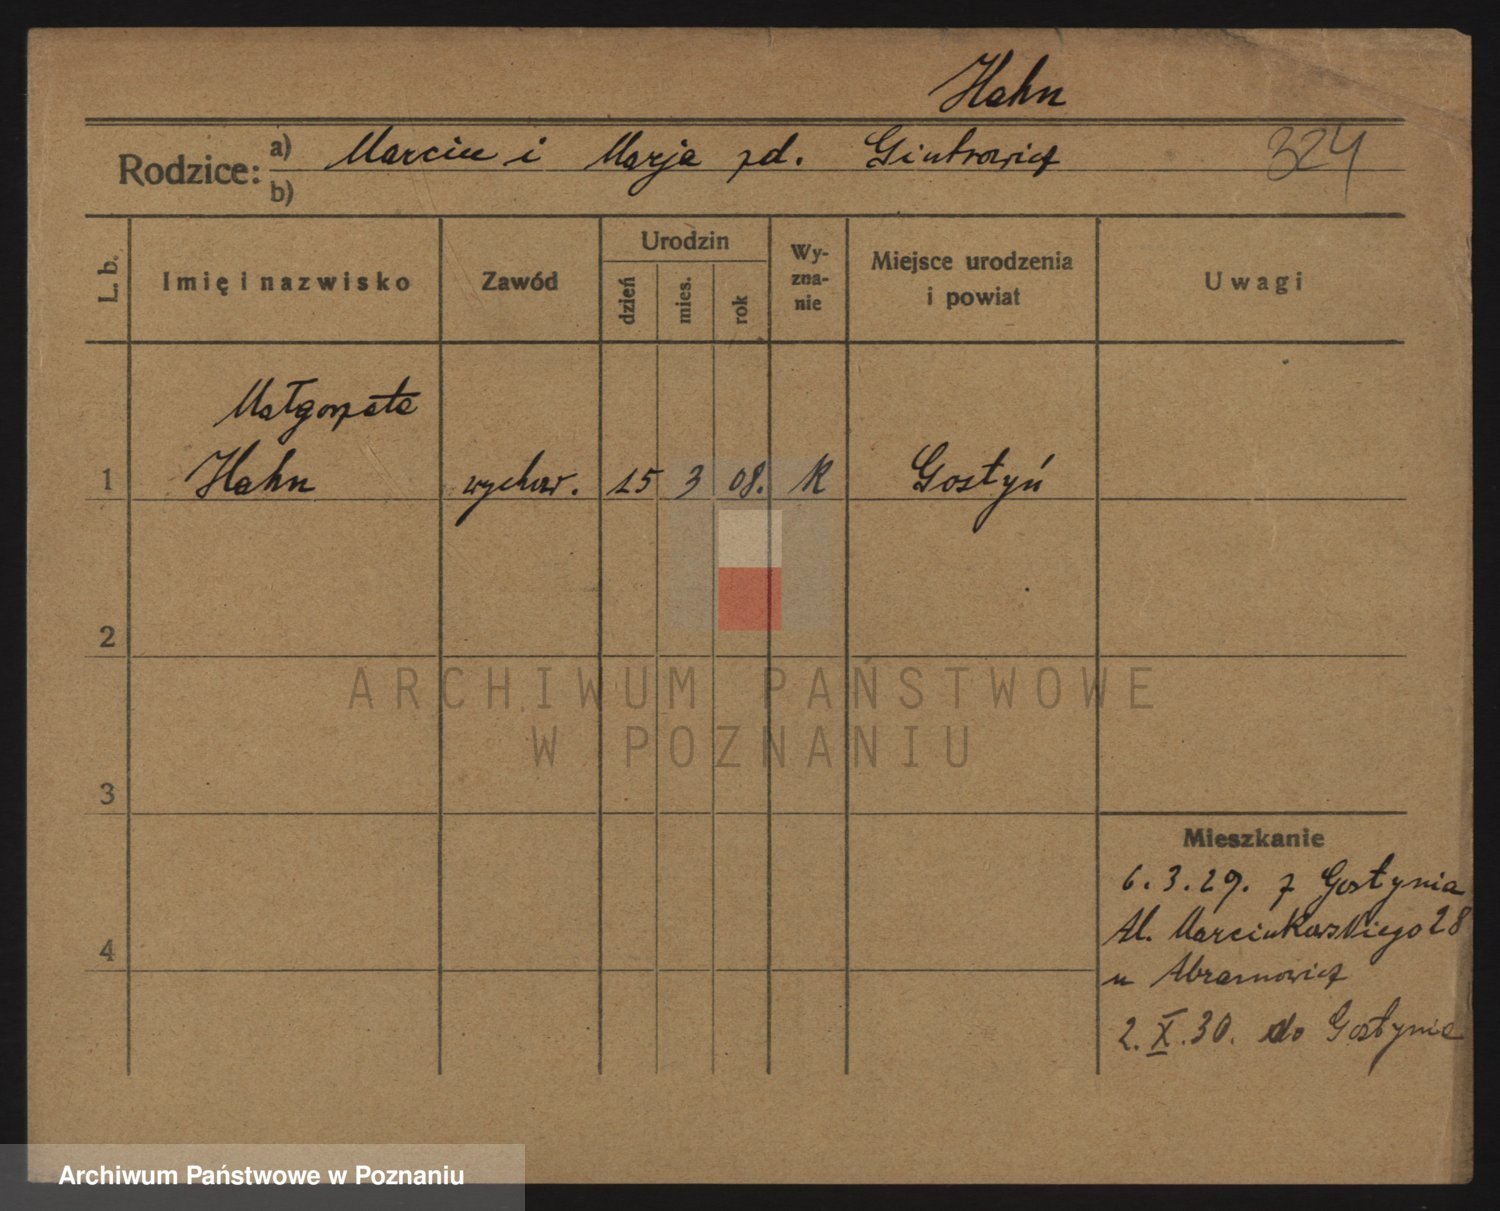 Hahn
Rodzice: a) Marcin i Marja zd. Gintrowicz
324
b)
L. b.
Imię i nazwisko
Zawód
Urodzin
dzień
mies.
rok
Wy-
zna-
nie
Miejsce urodzenia
i powiat
Uwagi
Małgorzata
1 Hahn wychow. 15 3 08. K Gostyń
2
3
4
ARCHIWUM PAŃSTWOWE
W POZNANIU
Mieszkanie
6.3.29. z Gostynia
Al. Marcinkowskiego 28
u Abramowicz
2.X.30. do Gostynia
Archiwum Państwowe w Poznaniu